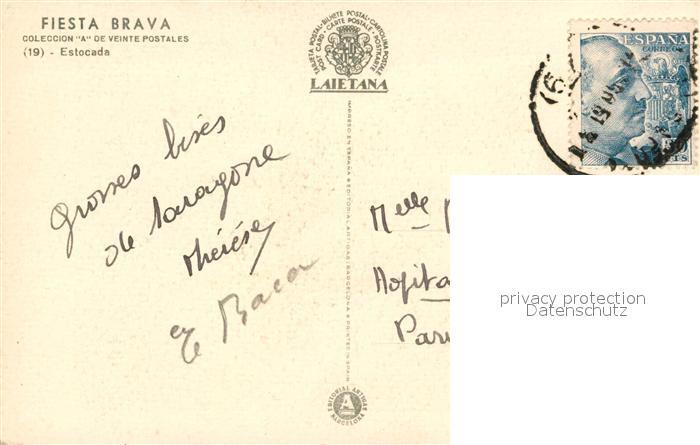 FIESTA BRAVA
COLECCION "A" DE VEINTE POSTALES
(19) - Estocada
TARJETA POSTAL-BILHETE POSTAL-CARTOLINA POSTALE
POST CARD-CARTE POSTALE-POSTKARTE
LAIETANA
ESPAÑA
CORREOS
CTS
grosses bises
de Saragosse
Thérèse
et
IMPRESO EN ESPAÑA EDITORIAL ARTIGAS BARCELONA PRINTED IN SPAIN
EDITORIAL ARTIGAS
A
BARCELONA
Melle
Hopita
Par
privacy protection
Datenschutz